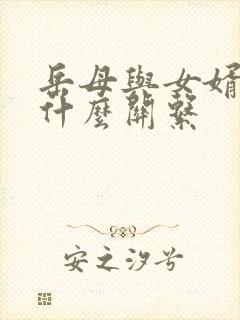 岳母與女婿
什麼關繫
安之汐兮